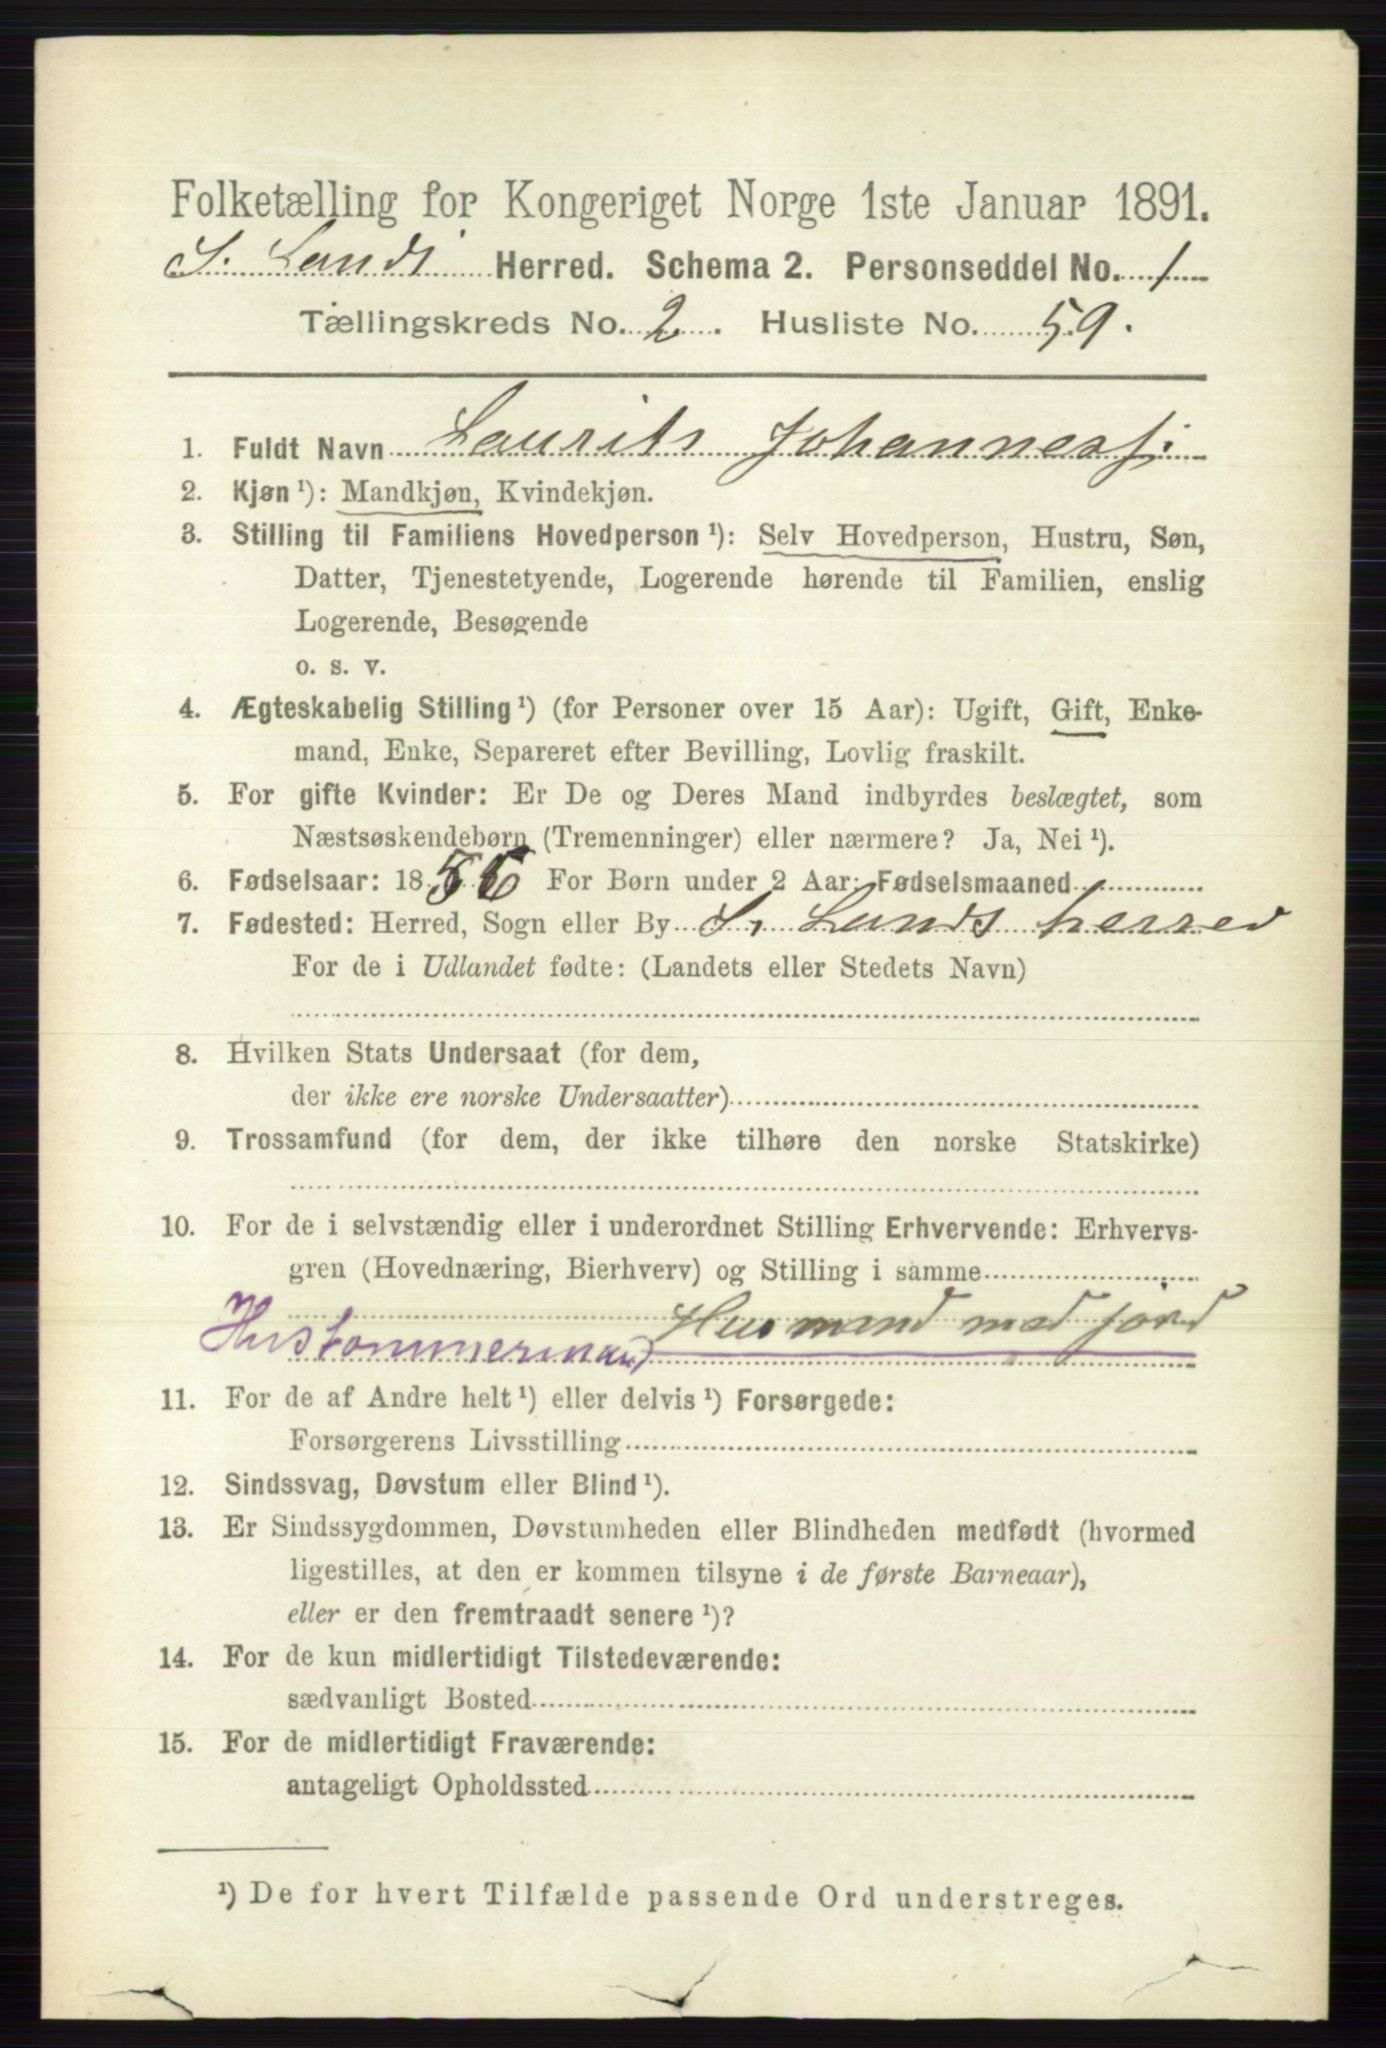 Folketælling for Kongeriget Norge 1ste Januar 1891.
S. Lands Herred. Schema 2. Personseddel No. 1
Tællingskreds No. 2. Husliste No. 59.
1. Fuldt Navn Laurits Johanness.
2. Kjøn ¹): Mandkjøn, Kvindekjøn.
3. Stilling til Familiens Hovedperson ¹): Selv Hovedperson, Hustru, Søn,
Datter, Tjenestetyende, Logerende hørende til Familien, enslig
Logerende, Besøgende
o. s. v.
4. Ægteskabelig Stilling ¹) (for Personer over 15 Aar): Ugift, Gift, Enke-
mand, Enke, Separeret efter Bevilling, Lovlig fraskilt.
5. For gifte Kvinder: Er De og Deres Mand indbyrdes beslægtet, som
Næstsøskendebørn (Tremenninger) eller nærmere? Ja, Nei ¹).
6. Fødselsaar: 1856 For Børn under 2 Aar: Fødselsmaaned
7. Fødested: Herred, Sogn eller By S. Lands herred
For de i Udlandet fødte: (Landets eller Stedets Navn)
8. Hvilken Stats Undersaat (for dem,
der ikke ere norske Undersaatter)
9. Trossamfund (for dem, der ikke tilhøre den norske Statskirke)
10. For de i selvstændig eller i underordnet Stilling Erhvervende: Erhvervs-
gren (Hovednæring, Bierhverv) og Stilling i samme
Husmand med jord
Hustommermand
11. For de af Andre helt ¹) eller delvis ¹) Forsørgede:
Forsørgerens Livsstilling
12. Sindssvag, Døvstum eller Blind ¹).
13. Er Sindssygdommen, Døvstumheden eller Blindheden medfødt (hvormed
ligestilles, at den er kommen tilsyne i de første Barneaar),
eller er den fremtraadt senere ¹)?
14. For de kun midlertidigt Tilstedeværende:
sædvanligt Bosted
15. For de midlertidigt Fraværende:
antageligt Opholdssted
¹) De for hvert Tilfælde passende Ord understreges.